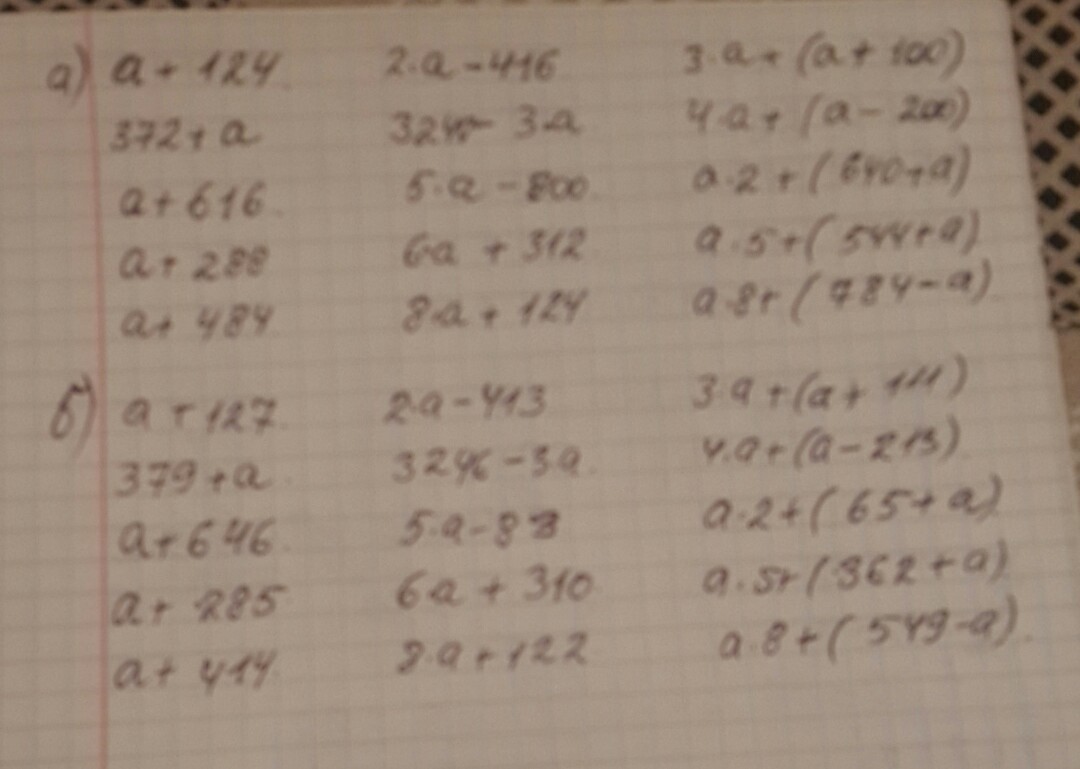 а) a + 124 2·a - 416 3·a + (a + 100)
372 + a - 3·a 4·a + (a - 200)
a + 616 5·a - 800 a·2 + (640 + a)
a + 288 6·a + 312 a·5 + (544 + a)
a + 484 8·a + 124 a·8 + (784 - a)
б) a + 127 2·a - 413 3·a + (a + 111)
379 + a - 3a 4·a + (a - 213)
a + 646 5·a - a·2 + (65 + a)
a + 285 6·a + 310 a·5 + (362 + a)
a + 414 8·a + 122 a·8 + (549 - a)